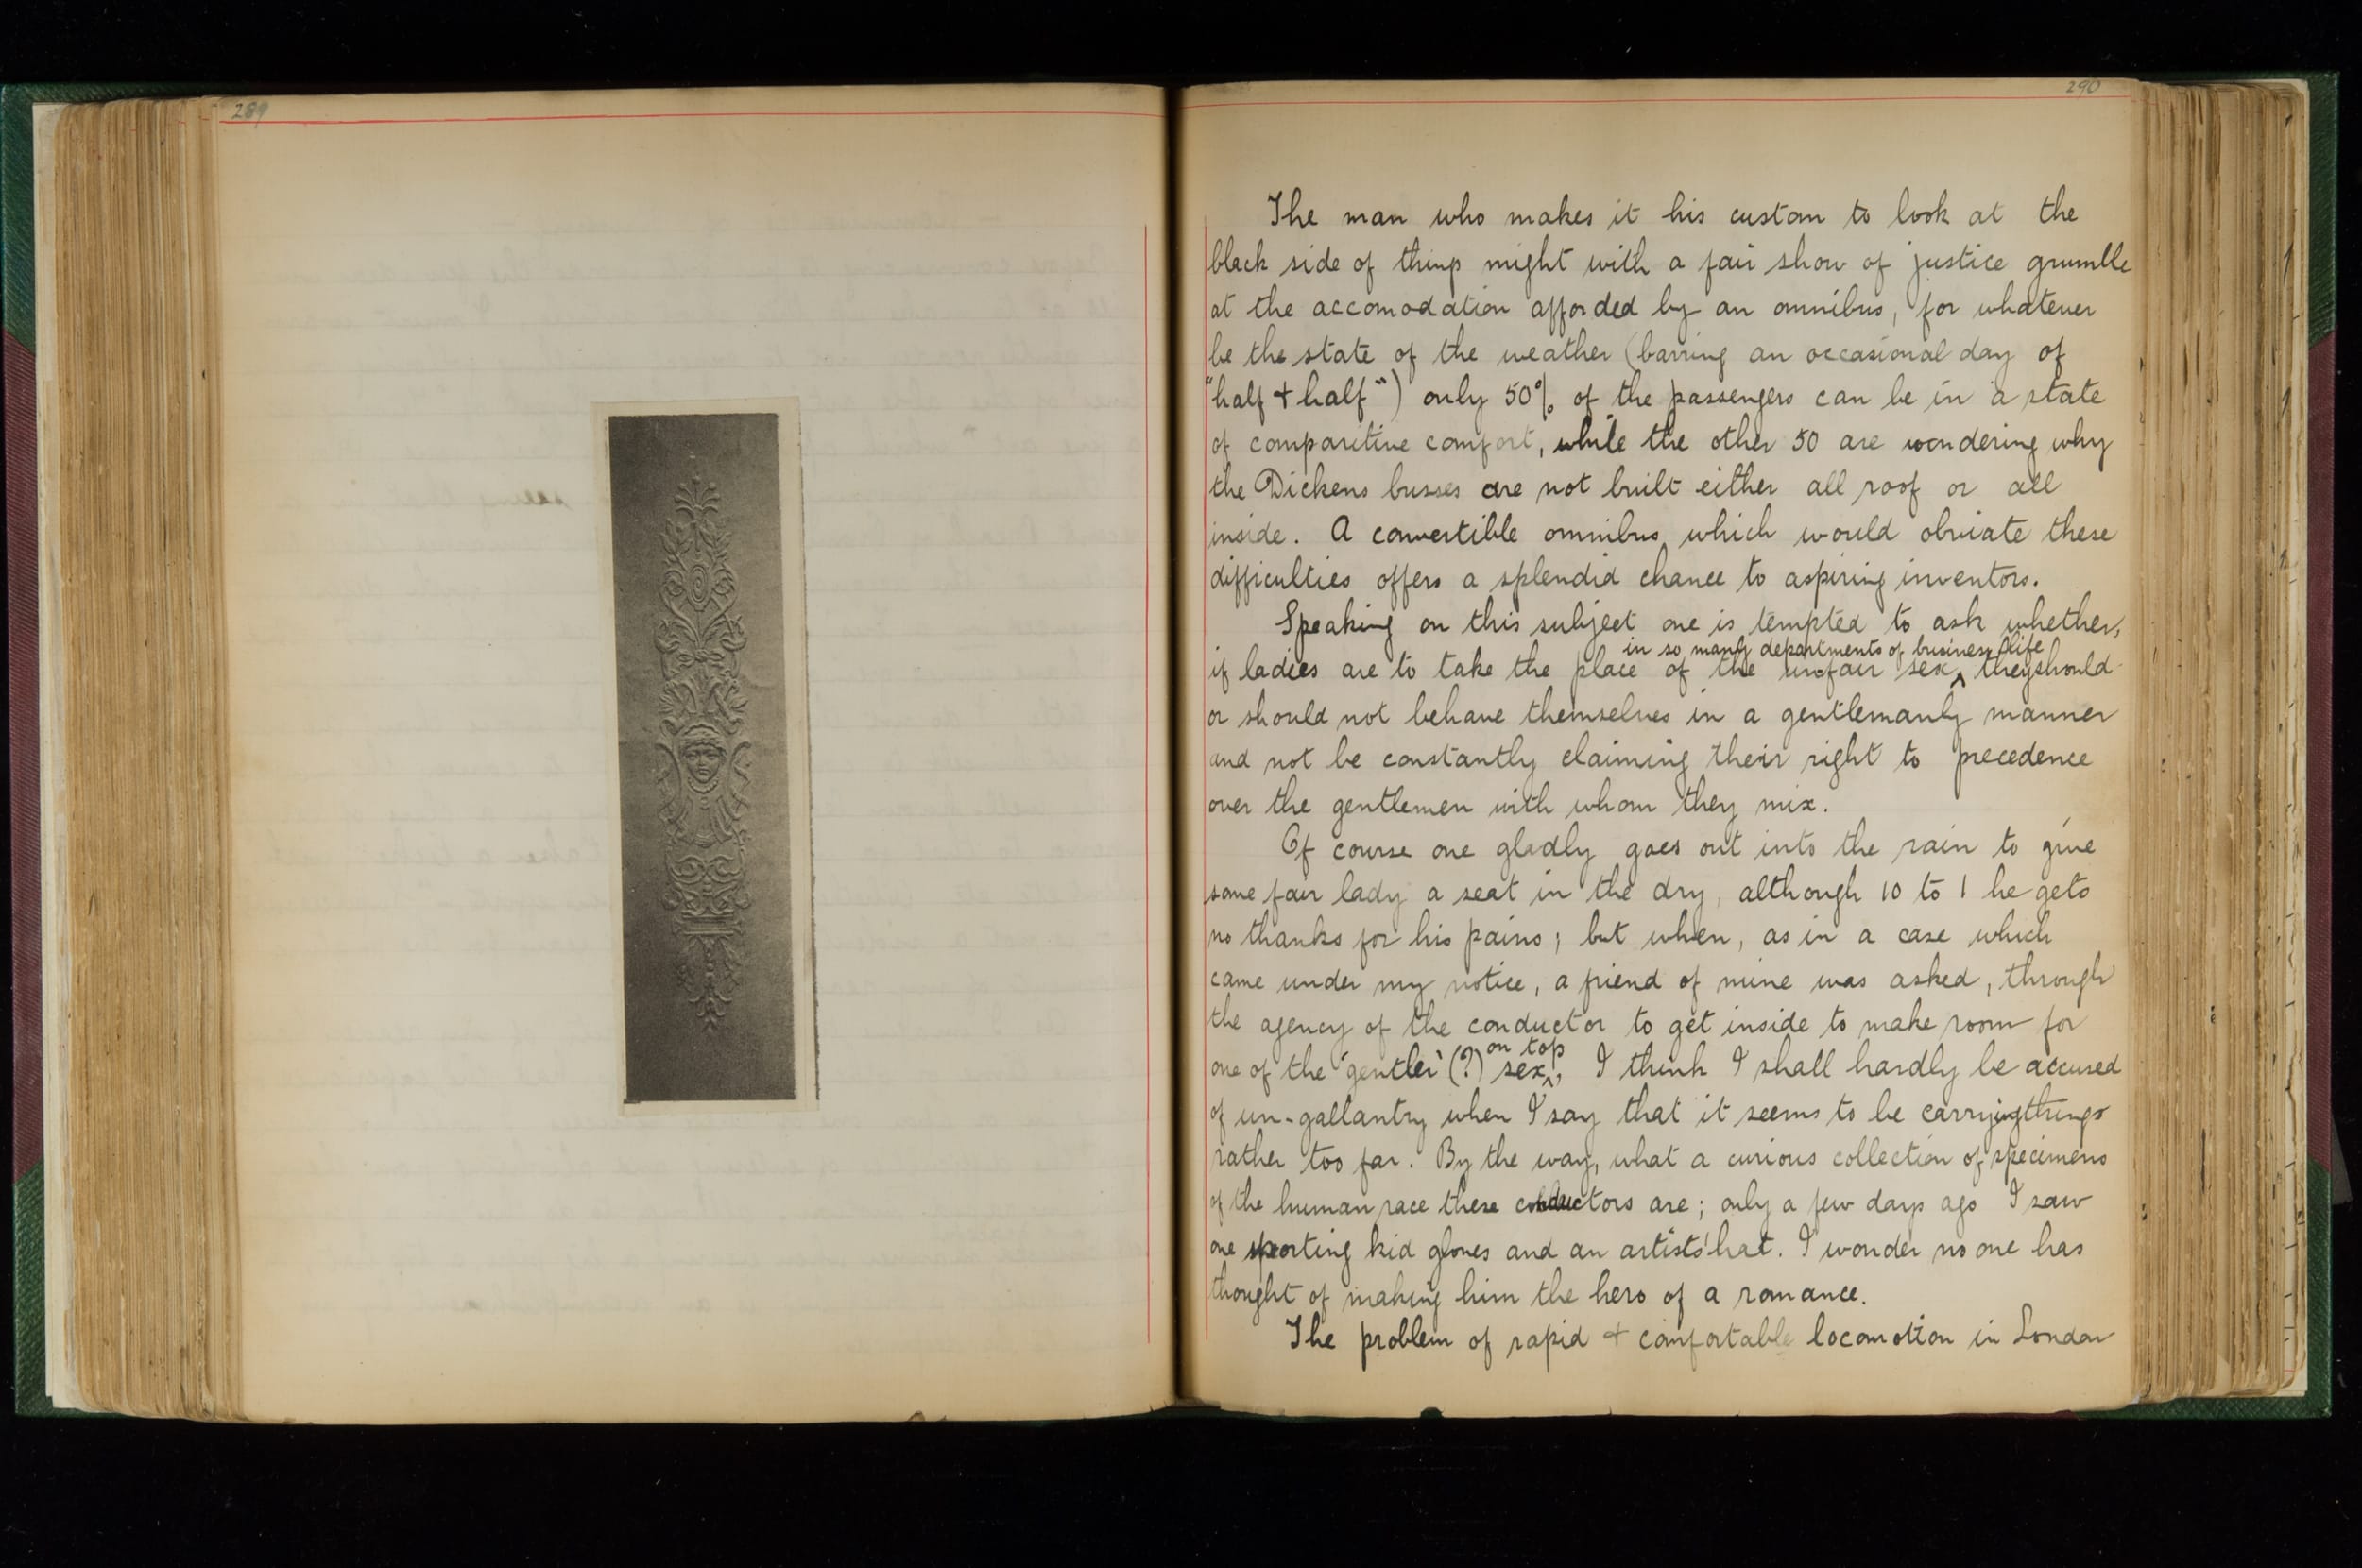 289
290
The man who makes it his custom to look at the
black side of things might with a fair show of justice grumble
at the accomodation afforded by an omnibus, for whatever
be the state of the weather (barring an occasional day of
"half + half") only 50% of the passengers can be in a state
of comparitive comfort, while the other 50 are wondering why
the Dickens busses are not built either all roof or all
inside. A convertible omnibus which would obviate these
difficulties offers a splendid chance to aspiring inventors.
Speaking on this subject one is tempted to ask whether,
in so many departments of business life
if ladies are to take the place of the unfair sex, they should
or should not behave themselves in a gentlemanly manner
and not be constantly claiming their right to precedence
over the gentlemen with whom they mix.
Of course one gladly goes out into the rain to give
some fair lady a seat in the dry, although 10 to 1 he gets
no thanks for his pains; but when, as in a case which
came under my notice, a friend of mine was asked, through
the agency of the conductor to get inside to make room for
on top
one of the 'gentler' (?) sex, I think I shall hardly be accused
of un-gallantry when I say that it seems to be carrying things
rather too far. By the way, what a curious collection of specimens
of the human race these conductors are; only a few days ago I saw
one sporting kid gloves and an artists' hat. I wonder no one has
thought of making him the hero of a romance.
The problem of rapid + comfortable locomotion in London